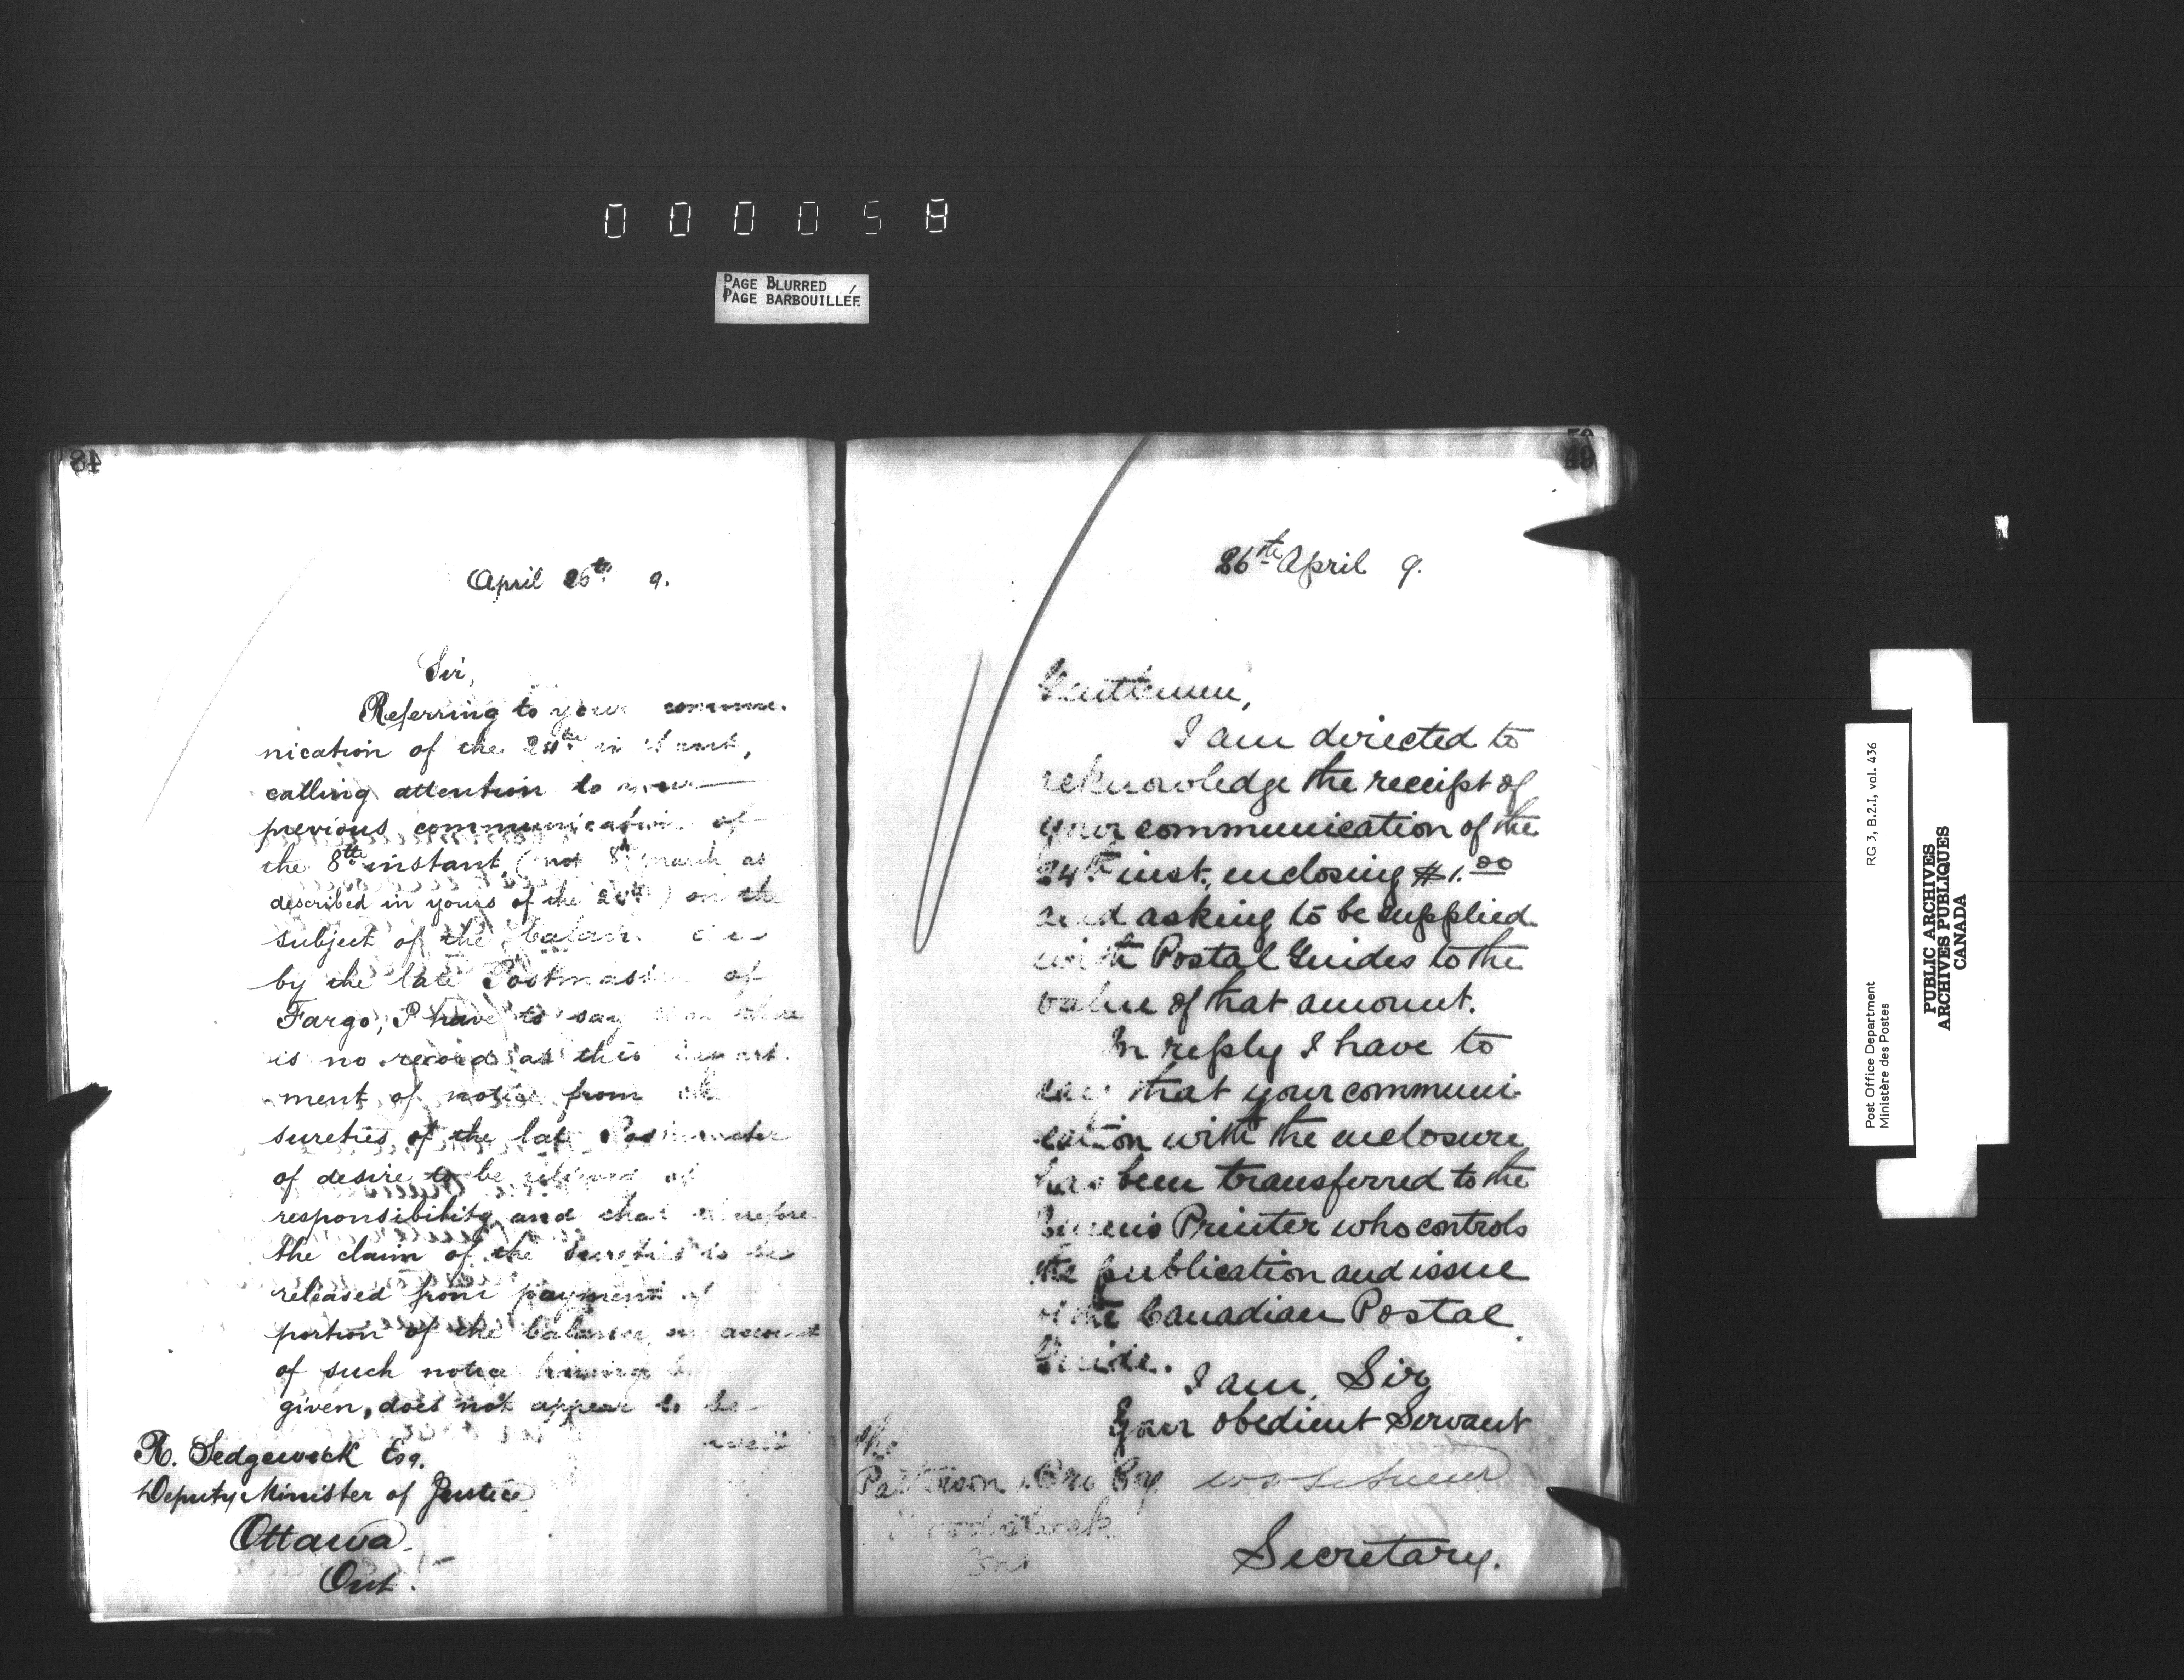 000058
PAGE BLURRED
PAGE BARBOUILLÉE
48
April 26th 9.
Sir,
Referring to your commu-
nication of the 24th instant,
calling attention to your
previous communication of
the 8th instant, (not 8th March as
described in yours of the 24th) on the
subject of the balance due
by the late Postmaster of
Fargo, I have to say that there
is no record at this Depart-
ment of notice from the
sureties of the late Postmaster
of desire to be relieved of
responsibility and that therefore
the claim of the Sureties to be
released from payment of
portion of the balance on account
of such notice having been
given, does not appear to be
well
R. Sedgewick Esq.
Deputy Minister of Justice
Ottawa.
Ont.
49
26th April 9.
Gentlemen,
I am directed to
acknowledge the receipt of
your communication of the
24th inst. enclosing $1.00
and asking to be supplied
with Postal Guides to the
value of that amount.
In reply I have to
say that your communi-
cation with the enclosure
has been transferred to the
Queen's Printer who controls
the publication and issue
of the Canadian Postal
Guide.
I am, Sir,
Your obedient Servant
Secretary.
The
Patterson & Bro Coy
Woodstock
Ont
Post Office Department RG 3, B.2.I, vol. 436
Ministère des Postes
PUBLIC ARCHIVES
ARCHIVES PUBLIQUES
CANADA